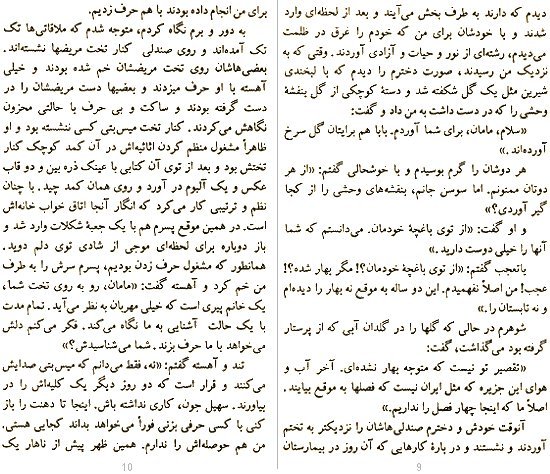 دیدم که دارند به طرف بخش می‌آیند و بعد از لحظه‌ای وارد
شدند و با خودشان برای من که خودم را غرق در ظلمت
می‌دیدم، رشته‌ای از نور و حیات و آزادی آوردند. وقتی که به
نزدیک من رسیدند، صورت دخترم را دیدم که با لبخندی
شیرین مثل یک گل شکفته شد و دستهٔ کوچکی از گل بنفشهٔ
وحشی را که در دست داشت به من داد و گفت:
«سلام، مامان، برای شما آوردم. بابا هم برایتان گل سرخ
آورده‌اند.»
هر دوشان را گرم بوسیدم و با خوشحالی گفتم: «از هر
دوتان ممنونم. اما سوسن جانم، بنفشه‌های وحشی را از کجا
گیر آوردی؟»
و او گفت: «از توی باغچهٔ خودمان. می‌دانستم که شما
آنها را خیلی دوست دارید.»
باتعجب گفتم: «از توی باغچهٔ خودمان؟! مگر بهار شده؟!
عجب! من اصلاً نفهمیدم. این دو ساله به موقع نه بهار را دیده‌ام
و نه تابستان را.»
شوهرم در حالی که گلها را در گلدان آبی که از پرستار
گرفته بود می‌گذاشت، گفت:
«تقصیر تو نیست که متوجه بهار نشده‌ای. آخر آب و
هوای این جزیره که مثل ایران نیست که فصلها به موقع بیایند.
اصلاً ما که اینجا چهار فصل را نداریم.»
آنوقت خودش و دخترم صندلی‌هاشان را نزدیکتر به تختم
آوردند و نشستند و در بارهٔ کارهایی که آن روز در بیمارستان
9
برای من انجام داده بودند با هم حرف زدیم.
به دور و برم نگاه کردم، متوجه شدم که ملاقاتی‌ها تک
تک آمده‌اند و روی صندلی کنار تخت مریضها نشسته‌اند.
بعضی‌هاشان روی تخت مریضشان خم شده بودند و خیلی
آهسته با او حرف میزدند و بعضیها دست مریضشان را در
دست گرفته بودند و ساکت و بی حرف با حالتی محزون
نگاهش می‌کردند. کنار تخت میس‌بتی کسی ننشسته بود و او
ظاهراً مشغول منظم کردن اثاثیه‌اش در آن کمد کوچک کنار
تختش بود و بعد از توی آن کتابی با عینک ذره بین و دو قاب
عکس و یک آلبوم در آورد و روی همان کمد چید. با چنان
نظم و ترتیبی کار می‌کرد که انگار آنجا اتاق خواب خانه‌اش
است. در همین موقع پسرم هم با یک جعبهٔ شکلات وارد شد و
باز دوباره برای لحظه‌ای موجی از شادی توی دلم دوید.
همانطور که مشغول حرف زدن بودیم، پسرم سرش را به طرف
من خم کرد و آهسته گفت: «مامان، رو به روی تخت شما،
یک خانم پیری است که خیلی مهربان به نظر می‌آید. تمام مدت
با یک حالت آشنایی به ما نگاه می‌کند. فکر می‌کنم دلش
می‌خواهد با ما حرف بزند. شما می‌شناسیدش؟»
تند و آهسته گفتم: «نه، فقط می‌دانم که میس‌بتی صدایش
می‌کنند و قرار است که دو روز دیگر یک کلیه‌اش را در
بیاورند. سهیل جون، کاری نداشته باش. اینجا تا دهنت را باز
کنی یا کسی حرفی بزنی فوراً می‌خواهد بداند کجایی هستی.
من هم حوصله‌اش را ندارم. همین ظهر پیش از ناهار یک
10